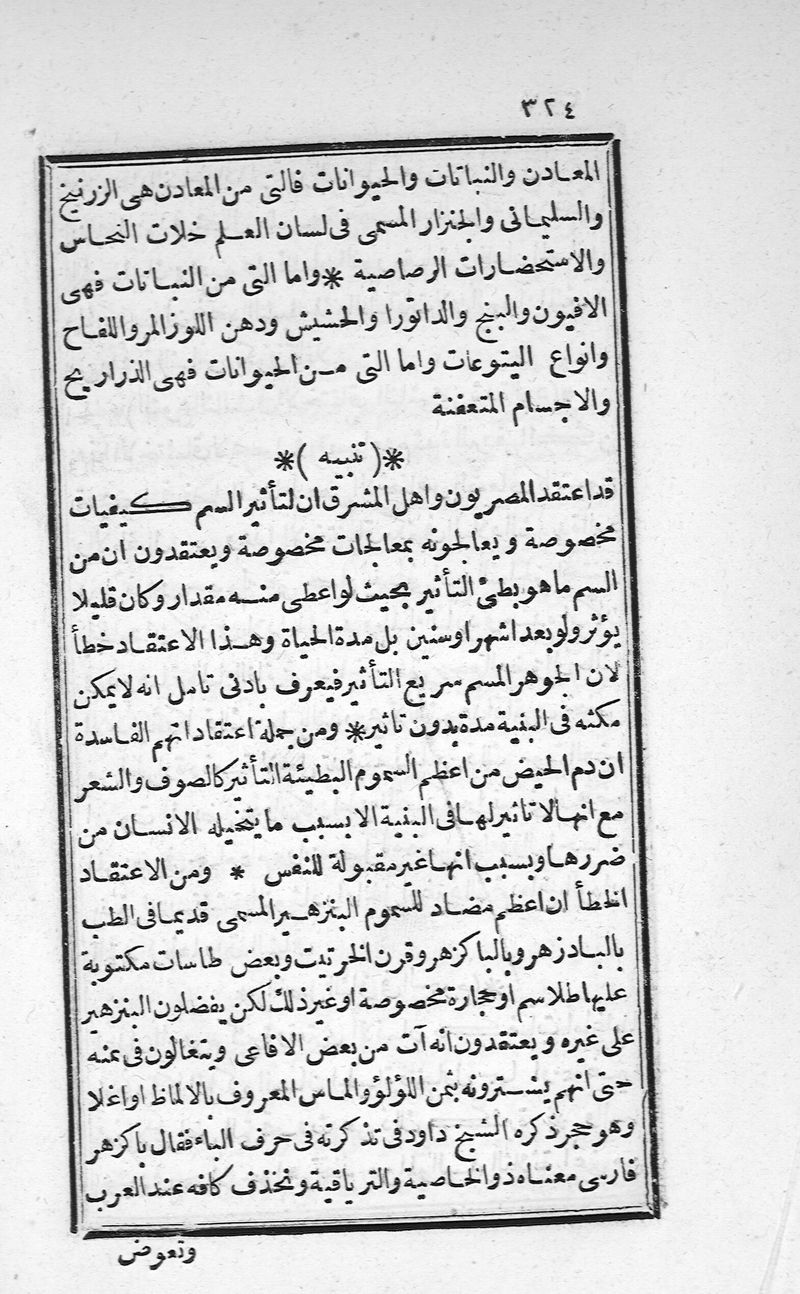 ٣٢٤
المعادن والنباتات والحيوانات فالتى من المعادن هى الزرنيخ
والسليمانى والجنزار المسمى فى لسان العلم خلات النحاس
والاستحضارات الرصاصية * واما التى من النباتات فهى
الافيون والبنج والداتورا والحشيش ودهن اللوز المر واللفاح
وانواع اليتوعات واما التى من الحيوانات فهى الذراريح
والاجسام المتعفنة
*( تنبيه )*
قد اعتقد المصريون واهل المشرق ان لتأثير السم كيفيات
مخصوصة ويعالجونه بمعالجات مخصوصة ويعتقدون ان من
السم ما هو بطئ التأثير بحيث لو اعطى منه مقدار وكان قليلا
يؤثر ولو بعد اشهر او سنين بل مدة الحياة وهذا الاعتقاد خطأ
لان الجوهر المسم سريع التأثير فيعرف بادنى تامل انه لا يمكن
مكثه فى البنية مدة بدون تاثير * ومن جملة اعتقاداتهم الفاسدة
ان دم الحيض من اعظم السموم البطيئة التأثير كالصوف والشعر
مع انها لا تاثير لها فى البنية الا بسبب ما يتخيله الانسان من
ضررها وبسبب انها غير مقبولة للنفس * ومن الاعتقاد
الخطأ ان اعظم مضاد للسموم البنزهير المسمى قديما فى الطب
بالبادزهر وبالباكزهر وقرن الخرتيت وبعض طاسات مكتوبة
عليها طلاسم او حجارة مخصوصة او غير ذلك لكن يفضلون البنزهير
على غيره ويعتقدون انه آت من بعض الافاعى ويتغالون فى ثمنه
حتى انهم يشترونه بثمن اللؤلؤ والماس المعروف بالالماظ او اغلا
وهو حجر ذكره الشيخ داود فى تذكرته فى حرف الباء فقال باكزهر
فارسى معناه ذو الخاصية والترياقية ونحذف كافه عند العرب
وتعوض